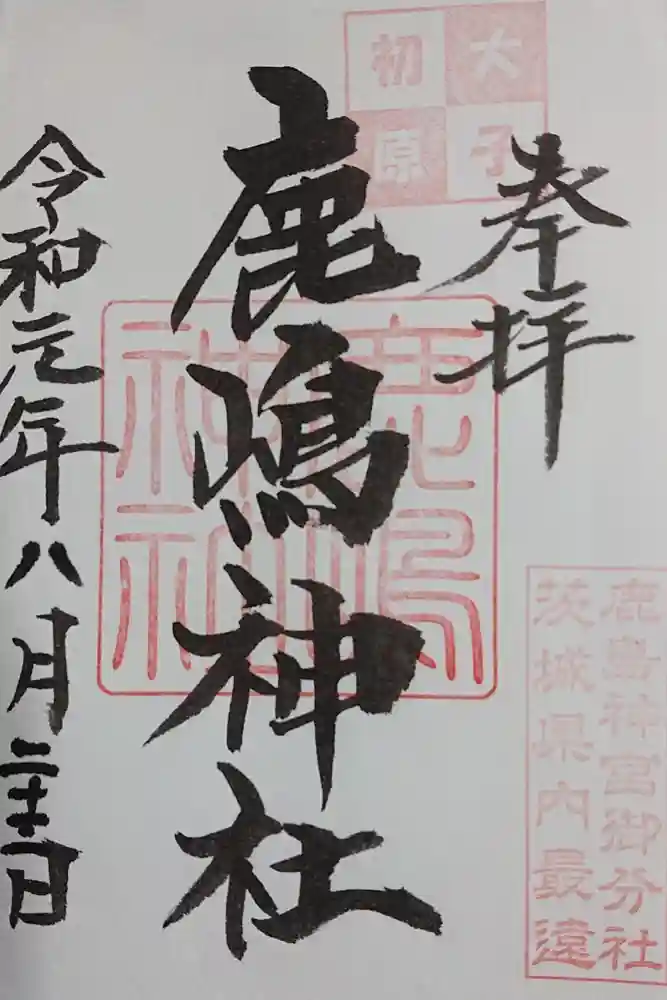 大子
初原
奉拝
鹿島神宮御分社
茨城県内最遠
鹿嶋神社
鹿嶋
神社
令和元年八月